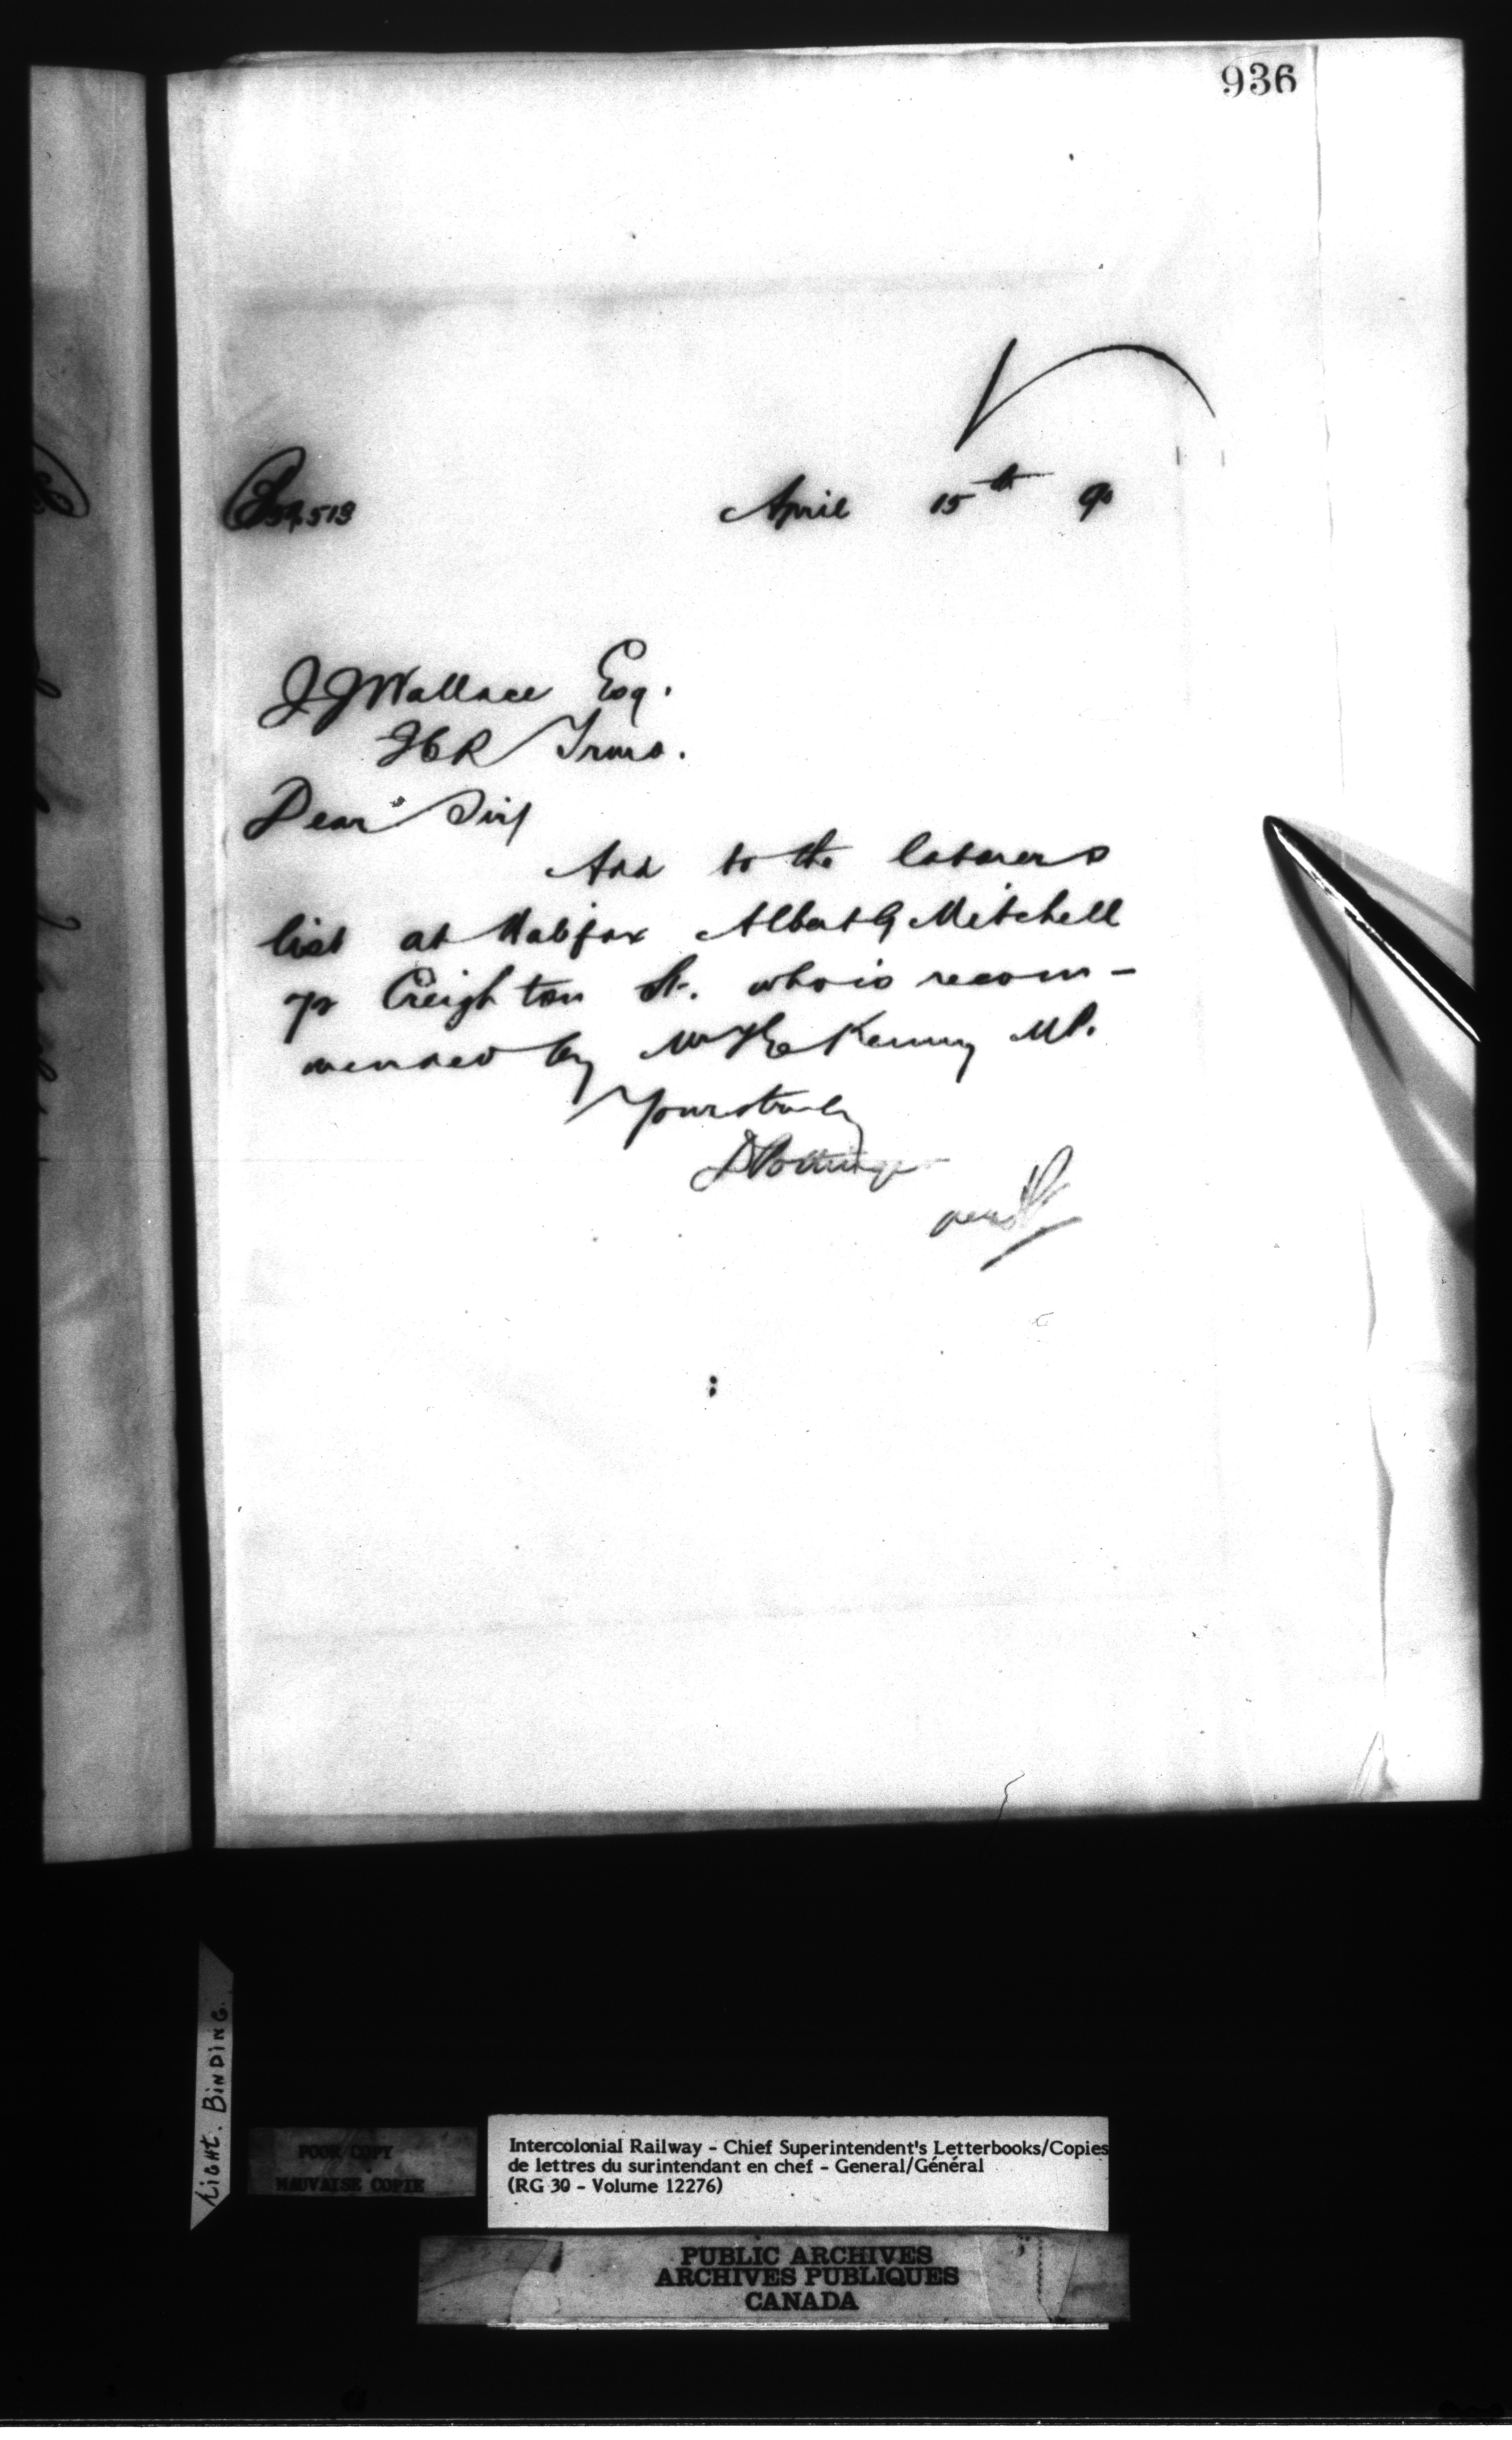 936
54,513
April 15th 90
J J Wallace Esq.
ICR Truro.
Dear Sir,
Add to the laborers
list at Halifax Albert G Mitchell
72 Creighton St. who is recom-
mended by Mr T E Kenny MP.
Yours truly
D Pottinger
LIGHT. BINDING.
POOR COPY
MAUVAISE COPIE
Intercolonial Railway - Chief Superintendent's Letterbooks/Copies
de lettres du surintendant en chef - General/Général
(RG 30 - Volume 12276)
PUBLIC ARCHIVES
ARCHIVES PUBLIQUES
CANADA